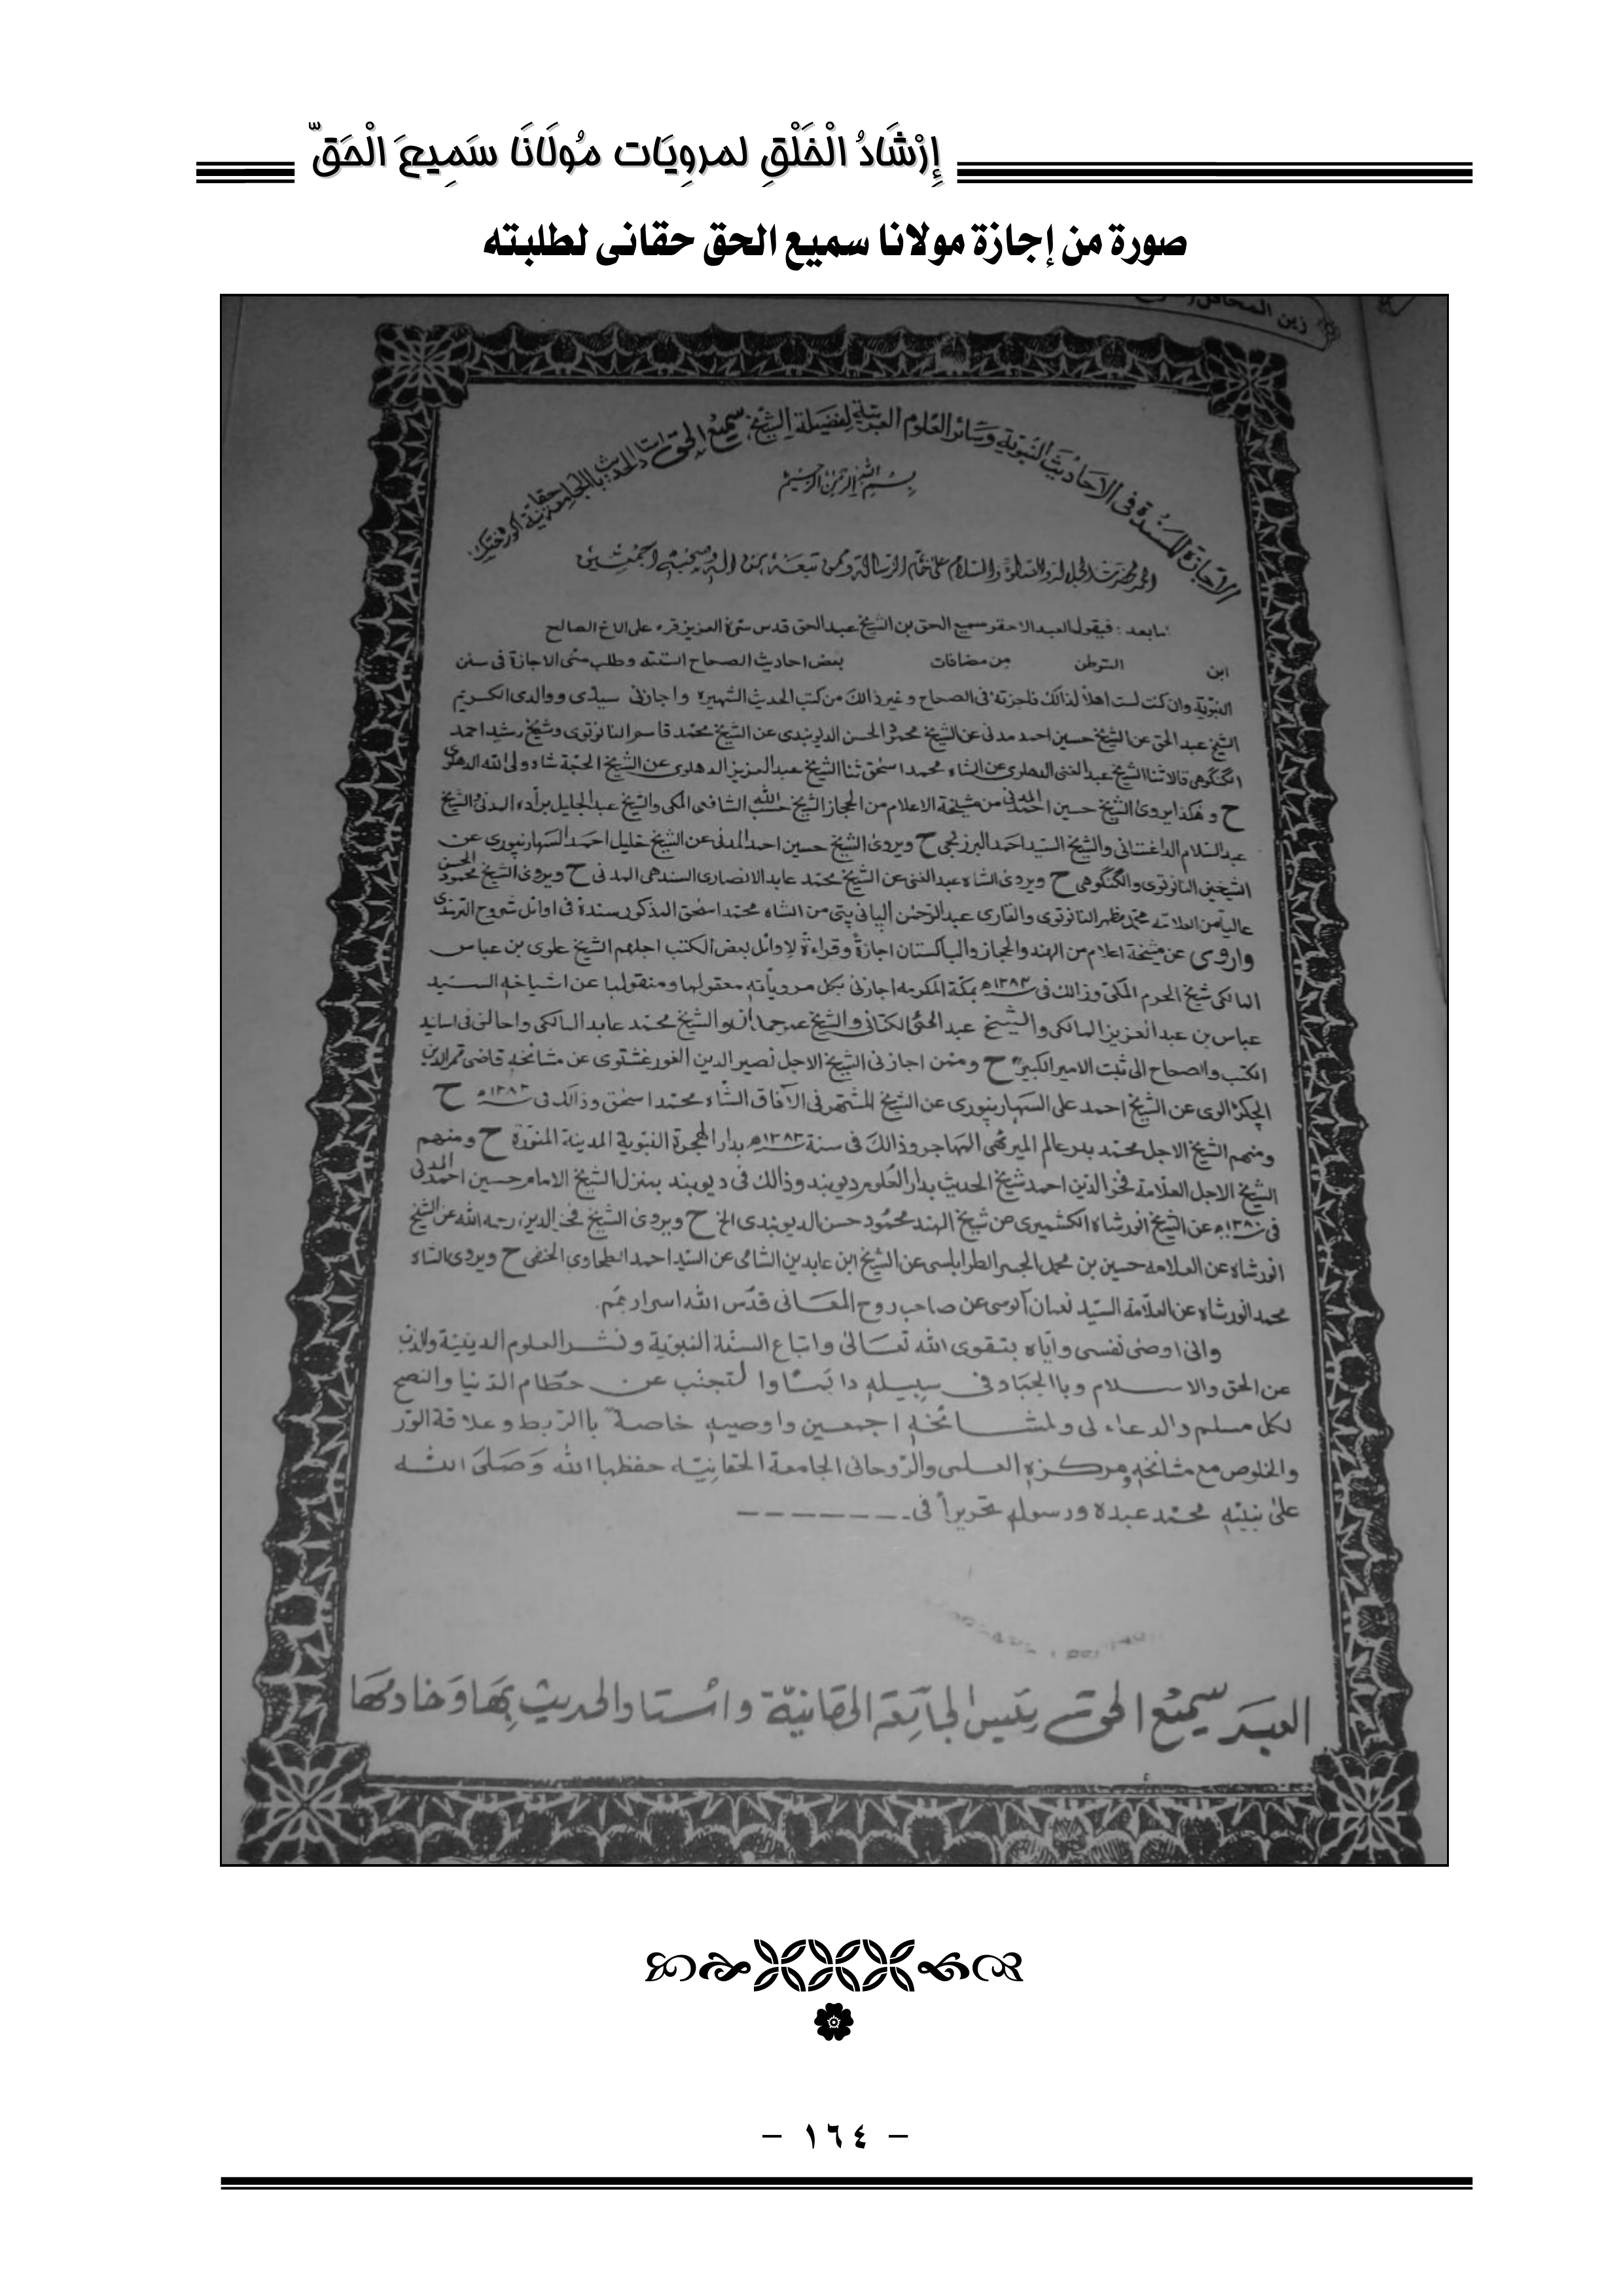 إِرْشَادُ الْخَلْقِ لمرويَات مُولَانَا سَمِيعَ الْحَقّ
صورة من إجازة مولانا سميع الحق حقانى لطلبته
زين المحافل
الاجازة المسندة فى الاحاديث النبوية وسائر العلوم العربية لفضيلة الشيخ سميع الحق استاذ الحديث بالجامعة حقانية اكوره ختك
بسم الله الرحمن الرحيم
الحمد لحضرت الجلالة والصلوة والسلام على خاتم الرسالة ومن تبعه من اله وصحبه اجمعين
امابعد: فيقول العبد الاحقر سميع الحق بن الشيخ عبدالحق قدس سره العزيز قره على الاخ الصالح
ابن التوطن من مضافات بعض احاديث الصحاح الستة وطلب منى الاجازة فى سنن
النبوية وان كنت لست اهلاً لذالك فاجزته فى الصحاح وغير ذالك من كتب الحديث الشهيره واجازنى سيدى ووالدى الكريم
الشيخ عبد الحق عن الشيخ حسين احمد مدنى عن الشيخ محمود الحسن الديوبندى عن الشيخ محمد قاسم النانوتوى وشيخ رشيد احمد
الگنگوهى قالا ثنا الشيخ عبد الغنى الدهلوى عن الشاه محمد اسحق ثنا الشيخ عبد العزيز الدهلوى عن الشيخ الحجة شاه ولى الله الدهلوى
ح و هكذا يروى الشيخ حسين احمد المدنى من مشيخة الاعلام من الحجاز الشيخ حسب الله الشافعى المكى والشيخ عبد الجليل براده المدنى والشيخ
عبد السلام الداغستانى والشيخ السيد احمد البرزنجى ح ويروى الشيخ حسين احمد المدنى عن الشيخ خليل احمد السهارنپورى عن
الشيخين النانوتوى والگنگوهى ح ويروى الشاه عبد الغنى عن الشيخ محمد عابد الانصارى السندهى المدنى ح ويروى الشيخ محمود الحسن
عالياً من العلامه محمد مظهر النانوتوى والقارى عبد الرحمن البانى پتى من الشاه محمد اسحق المذكور سندة فى اوائل شروح الترمذى
واروى عن مشيخة اعلام من الهند والحجاز والباكستان اجازة وقراءة لاوائل بعض الكتب اجلهم الشيخ علوى بن عباس
المالكى شيخ الحرم المكى وذالك فى ١٣٨٣ه بمكة المكرمه اجازنى بكل مروياته معقولها ومنقولها عن اشياخه السيد
عباس بن عبد العزيز المالكى والشيخ عبد الحئ الكتانى والشيخ عمر حمدان والشيخ محمد عابد المالكى واحالنى فى اسانيد
الكتب والصحاح الى ثبت الامير الكبير ح وممن اجازنى الشيخ الاجل نصير الدين الغورغشتوى عن مشائخه قاضى قمر الدين
الچكڑالوى عن الشيخ احمد على السهارنپورى عن الشيخ المشتهر فى الآفاق الشاه محمد اسحق وذالك فى ١٣٨٣ه ح
ومنهم الشيخ الاجل محمد بدر عالم الميرتهى المهاجر وذالك فى سنة ١٣٨٣ه بدار الهجرة النبوية المدينة المنورة ح ومنهم
الشيخ الاجل العلامة فخر الدين احمد شيخ الحديث بدار العلوم ديوبند وذالك فى ديوبند بمنزل الشيخ الامام حسين احمد المدنى
فى ١٣٨٠ه عن الشيخ انور شاه الكشميرى من شيخ الهند محمود حسن الديوبندى الخ ح ويروى الشيخ فخر الدين رحمه الله عن الشيخ
انور شاه عن العلامه حسين بن محمد الجسر الطرابلسى عن الشيخ ابن عابدين الشامى عن السيد احمد الطحاوى الحنفى ح ويروى الشاه
محمد انور شاه عن العلامة السيد نعمان آلوسى عن صاحب روح المعانى قدس الله اسرارهم.
وانى اوصى نفسى واياه بتقوى الله تعالى واتباع السنة النبوية ونشر العلوم الدينية والذب
عن الحق والاسلام وبالجهاد فى سبيله دائما والتجنب عن حطام الدنيا والنصح
لكل مسلم والدعاء لى ولمشائخه اجمعين واوصيه خاصة بالربط وعلاقة الود
والخلوص مع مشائخه ومركزه العلمى والروحانى الجامعة الحقانية حفظها الله وَصَلى الله
على نبيه محمد عبده ورسوله تحريراً فى - - - - - - -
العبد سميع الحق رئيس الجامعة الحقانية واستاذ الحديث بها وخادمها
- ١٦٤ -